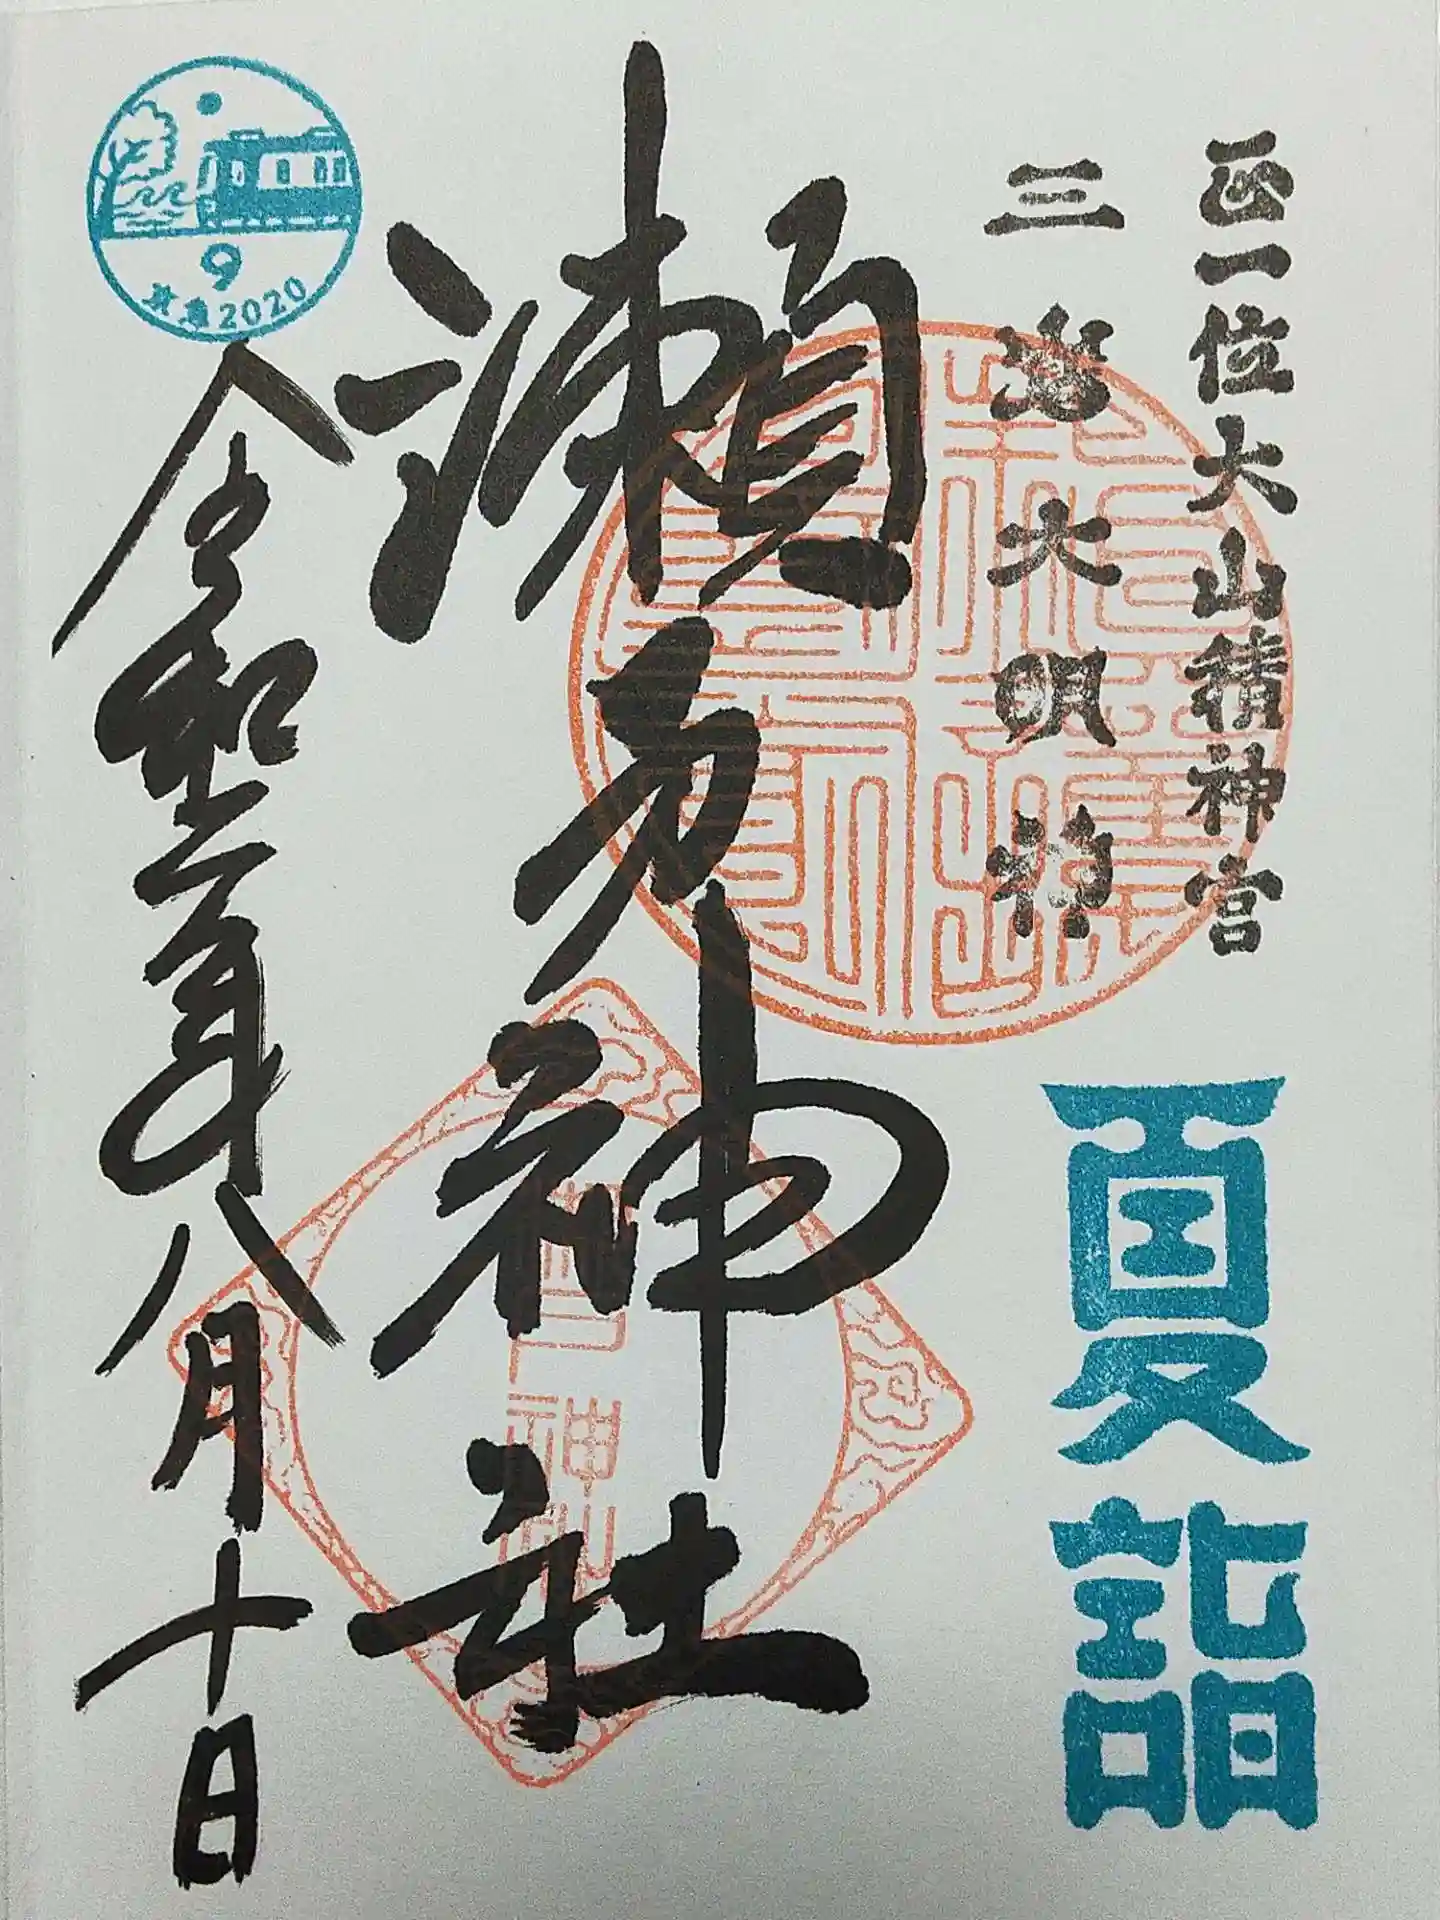 正一位大山積神宮
三嶌大明神
夏詣
瀬戸神社
令和二年八月十日
9
京急2020